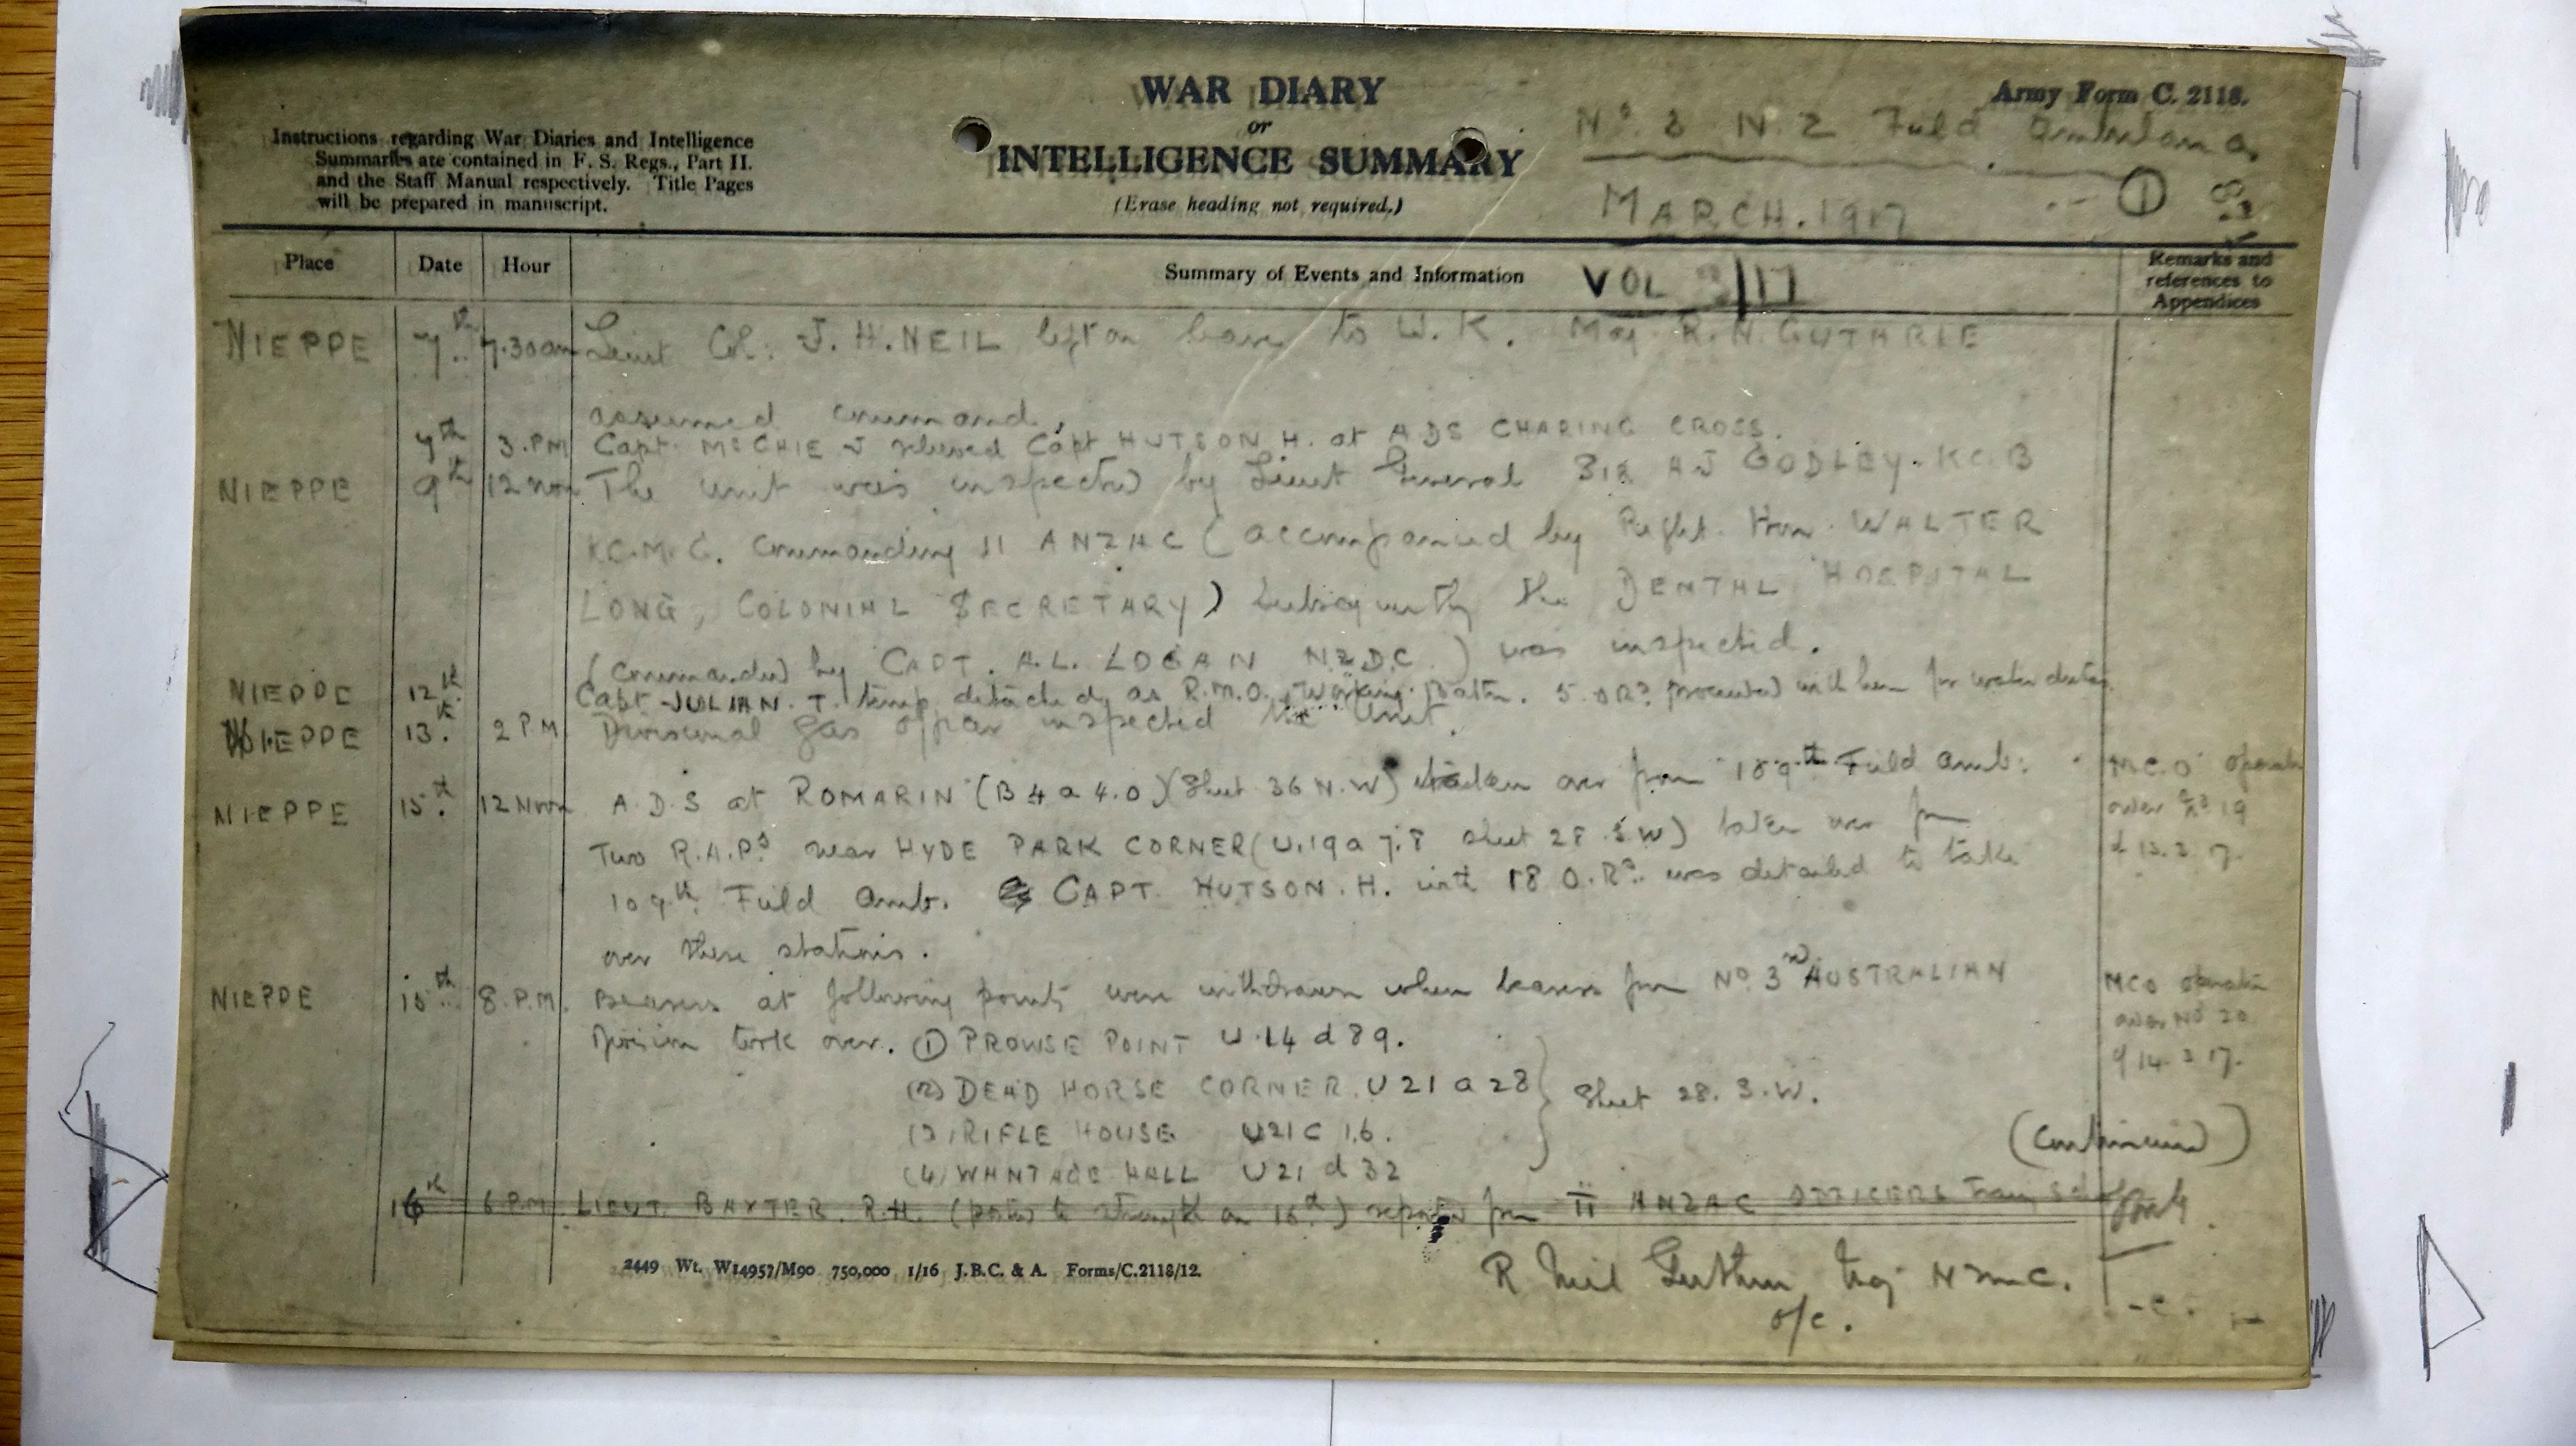 Army Form C. 2118.
WAR DIARY
or
INTELLIGENCE SUMMARY
(Erase heading not required.)
Instructions regarding War Diaries and Intelligence
Summaries are contained in F. S. Regs., Part II.
and the Staff Manual respectively. Title Pages
will be prepared in manuscript.
No. 3 N.Z Field Ambulance
MARCH. 1917
①
Place Date Hour Summary of Events and Information Remarks and references to Appendices
VOL /17
NIEPPE 7th 7.30am Lieut Col: J. H. NEIL left on leave to U.K. Maj R. N. GUTHRIE
assumed command.
7th 3.PM Capt. McGHIE J relieved Capt HUTSON H. at ADS CHARING CROSS.
NIEPPE 9th 12 noon The unit was inspected by Lieut General SIR A J GODLEY. KCB
KC.M.G. Commanding II ANZAC (accompanied by Right. Hon. WALTER
LONG, COLONIAL SECRETARY) Subsequently the DENTAL HOSPITAL
(Commanded by CAPT. A.L. LOGAN NZDC.) was inspected.
NIEPPE 12th Capt JULIAN. T. temp. detached as R.M.O. Working Battn. 5 ORs proceeded with him for water duties.
NIEPPE 13. 2 PM Divisional Gas officer inspected the Unit.
NIEPPE 15th. 12 Noon A.D.S at ROMARIN (B 4 a 4.0) (Sheet 36 N.W) taken over from 109th Field Amb: M.C.O operation
Two R.A.Ps near HYDE PARK CORNER (U.19a 7.8 sheet 28 S.W) taken over from order No 19
109th Field Amb. CAPT. HUTSON. H. with 18 O.Rs. was detailed to take d 13.3 17.
over these stations.
NIEPPE 15th 8.P.M. Bearers at following points were withdrawn when bearers from No 3rd AUSTRALIAN MCO operation
Division took over. ① PROWSE POINT U.14 d 89. order No 20
(2) DEAD HORSE CORNER. U 21 a 28 Sheet 28. S.W. of 14 3 17.
(3) RIFLE HOUSE U21C 1.6.
(4) WHNTAGE HALL U 21 d 32
(Continued)
16th 6 PM LIEUT. BAXTER. R.H. (posted to strength on 16th) reported from II ANZAC OFFICERS
R Neil Guthrie Maj NZMC.
o/c.
2449 Wt. W14957/M90 750,000 1/16 J.B.C. & A. Forms/C.2118/12.